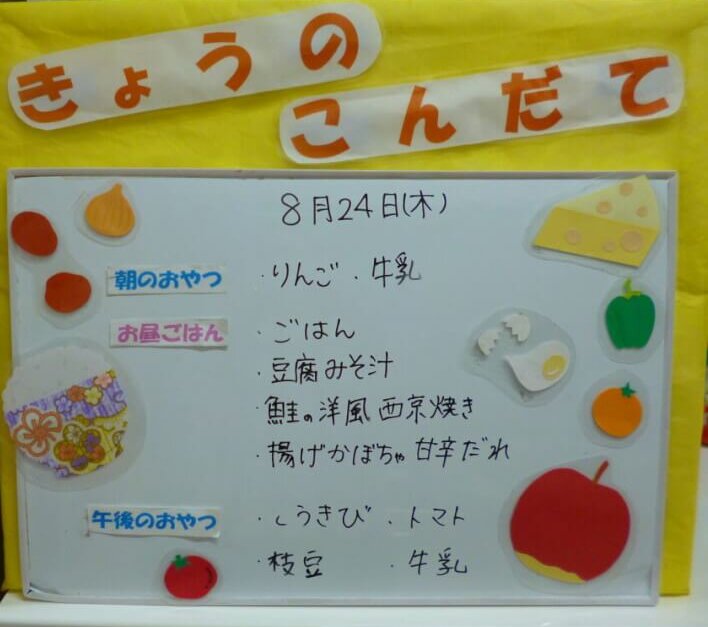 きょうの
こんだて
8月24日(木)
朝のおやつ ・りんご ・牛乳
お昼ごはん ・ごはん
・豆腐みそ汁
・鮭の洋風西京焼き
・揚げかぼちゃ甘辛だれ
午後のおやつ ・とうきび ・トマト
・枝豆 ・牛乳